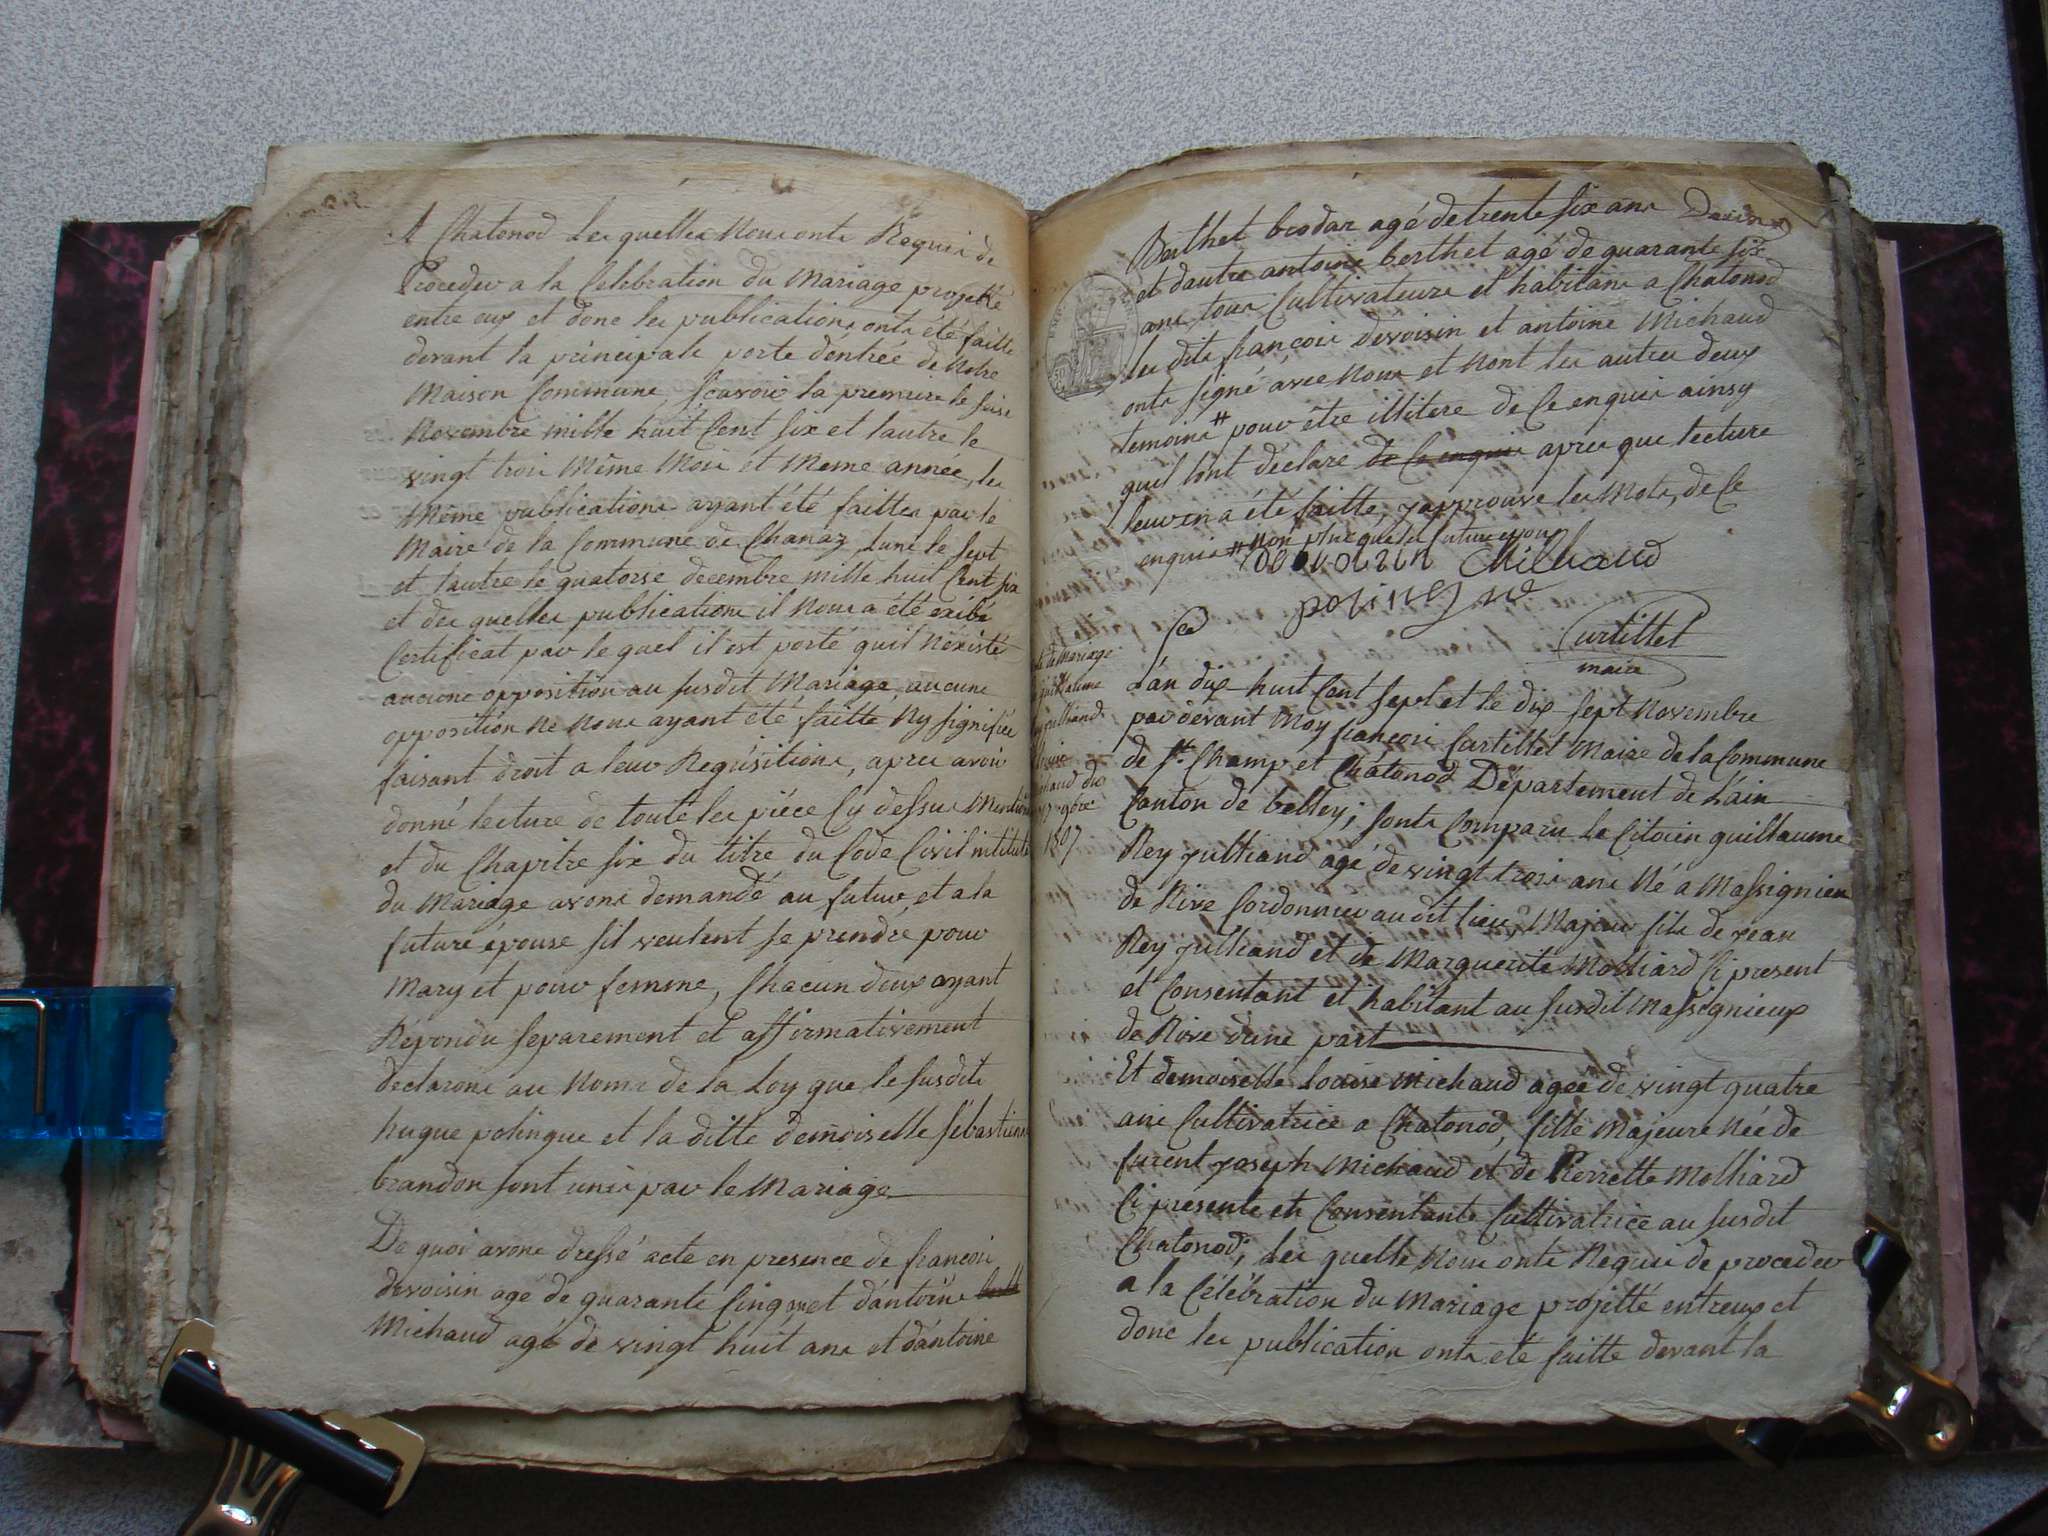 A Chatonod Lesquelles Nous onts Requis de
Proceder a la Celebration du Mariage projetté
entre eux et donc les publications onts été faitte
devant la principale porte d'entrée de Notre
Maison Commune, scavoir la premiere le seise
Novembre mille huit Cent six et lautre le
vingt trois Même Mois et Meme année, les
Même publications ayant été faittes par le
Maire de la Commune de Chanaz Lune le sept
et lautre le quatorse decembre mille huit Cent six
et des quelles publications il Nous a été exibé
Certificat par le quel il est porté quil Néxiste
aucune opposition au susdit Mariage, aucune
opposition Ne Nous ayant été faitte Ny signifiée
faisant droit a leur Requisitions, apres avoir
donné lecture de toute les piéce Cy dessus Mention
et du Chapitre six du titre du Code Civil intitulé
du Mariage avons demandé au futur et a la
future épouse sil veulent se prendre pour
Mary et pour femme, Chacun deux ayant
Répondu separement et affirmativement
declarons au Noms de la Loy que le susdits
hugue polingue et la ditte demoiselle sébastienne
brandon sont unis par le Mariage
De quoi avons dressé acte en presence de francois
devoisin agé de quarante Cinq et d'antoine
Michaud agé de vingt huit ans et d'antoine
Berthet brodar agé de trente six ans
et dautre antoine berthet agé de quarante six
ans tous Cultivateurs et habitans a Chatonod
les dits françois devoisin et antoine Michaud
onts signé avec Nous et Nont les autres deux
temoins # pour être illitere de Ce enquis ainsy
quil lont declaré de Ce enquis apres que lecture
leur en a été faitte, japprouve les Mots, de Ce
enquis # non plus que les futurs epoux
devoisin Michaud
polingue
Curtillet
maire
de Mariage
guillaume
julliand
Louise
michaud du
17 9bre
1807
L'án dix huit Cent sept et le dix sept Novembre
par devant Moy françois Curtillet Maire de la Commune
de St. Champ et Chatonod Département de L'ain
Canton de belley; sonts Comparu le Citoien guillaume
Rey julliand agé de vingt trois ans Né a Massignieu
de Rive Cordonnier au dit lieu, Majeur fils de jean
Rey julliand et de Marguerite Molliard Ci present
et Consentant et habitant au susdit Massignieux
de Rive d'une part
Et demoiselle Louise Michaud agée de vingt quatre
ans Cultivatrice a Chatonod, fille Majeure Née de
furent joseph Michaud et de Pierrette Molliard
Ci presente et Consentante Cultivatrice au susdit
Chatonod, Les quelle Nous onts Requis de proceder
a la Célébration du Mariage projetté entreux et
donc les publication onts été faitte devant la